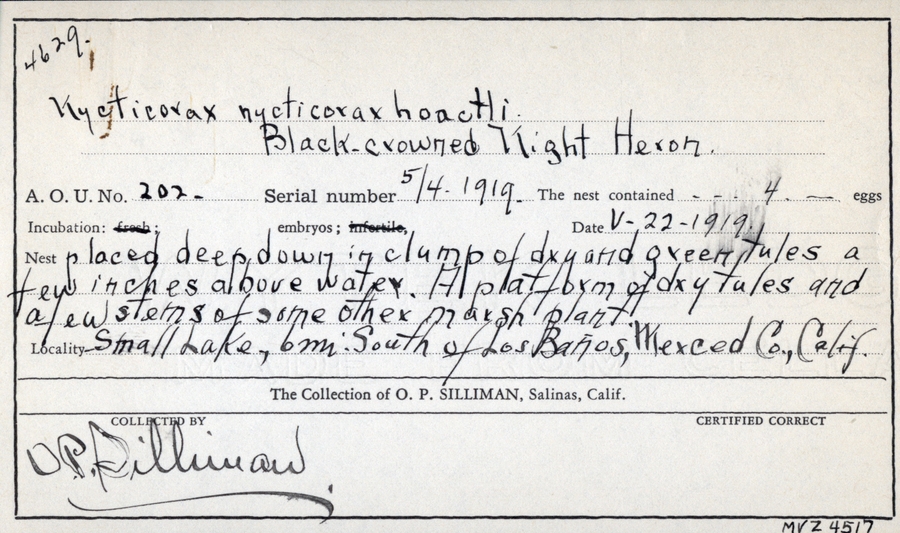 4629.
Nycticorax nycticorax hoactli.
Black-crowned Night Heron.
A. O. U. No. 202- Serial number 5/4-1919. The nest contained - - - 4 — eggs
Incubation: fresh; embryos; infertile, Date V-22-1919.
Nest placed deep down in clump of dry and green tules a
few inches above water. A platform of dry tules and
a few stems of some other marsh plant.
Locality Small Lake, 6 mi. South of Los Baños, Merced Co., Calif.
The Collection of O. P. SILLIMAN, Salinas, Calif.
COLLECTED BY CERTIFIED CORRECT
O.P. Silliman
MVZ 4517